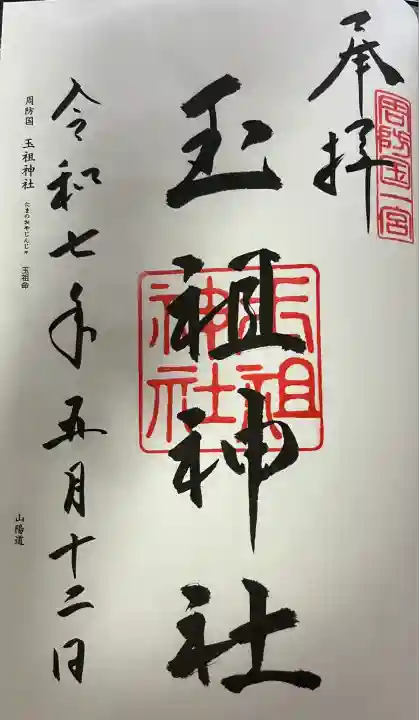 奉拝
周防国一宮
玉祖神社
玉祖神社
令和七年五月十二日
周防国 玉祖神社 たまのおやじんじゃ 玉祖命
山陽道